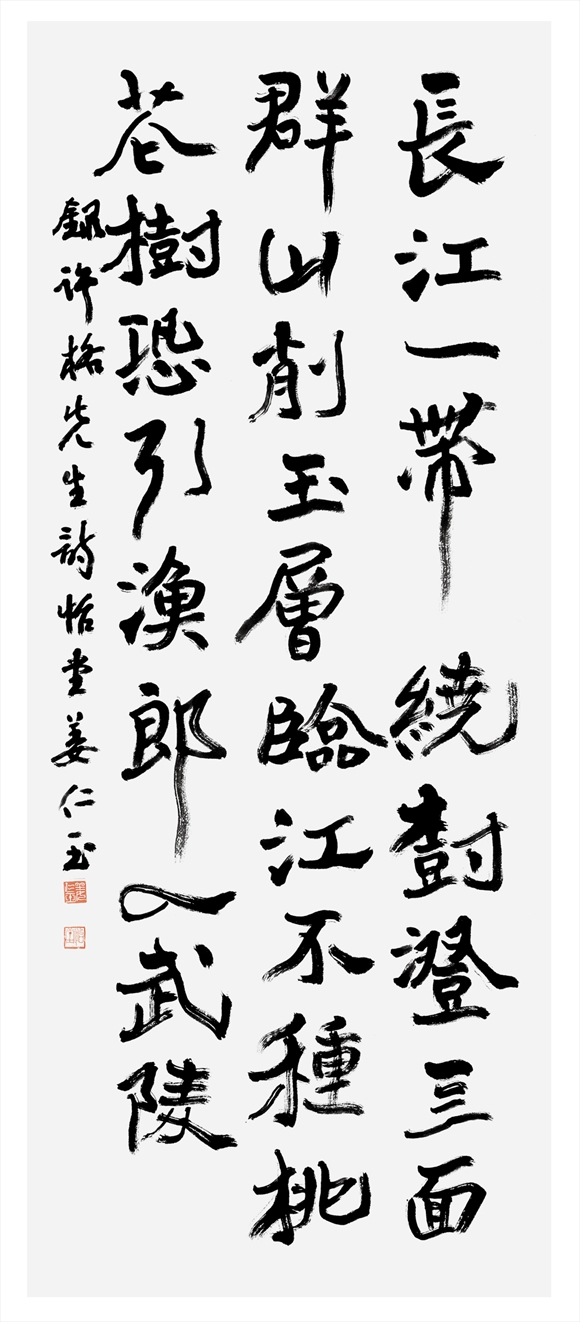 長江一帶繞尌澄三面
群山削玉層臨江不種桃
花樹恐引漁郎入武陵
錄許格先生詩恬堂姜仁玉